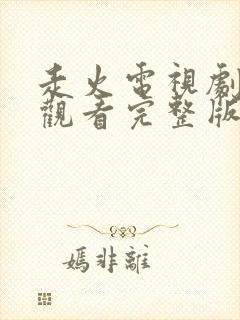 火電視劇
觀看完整版
嫣非離